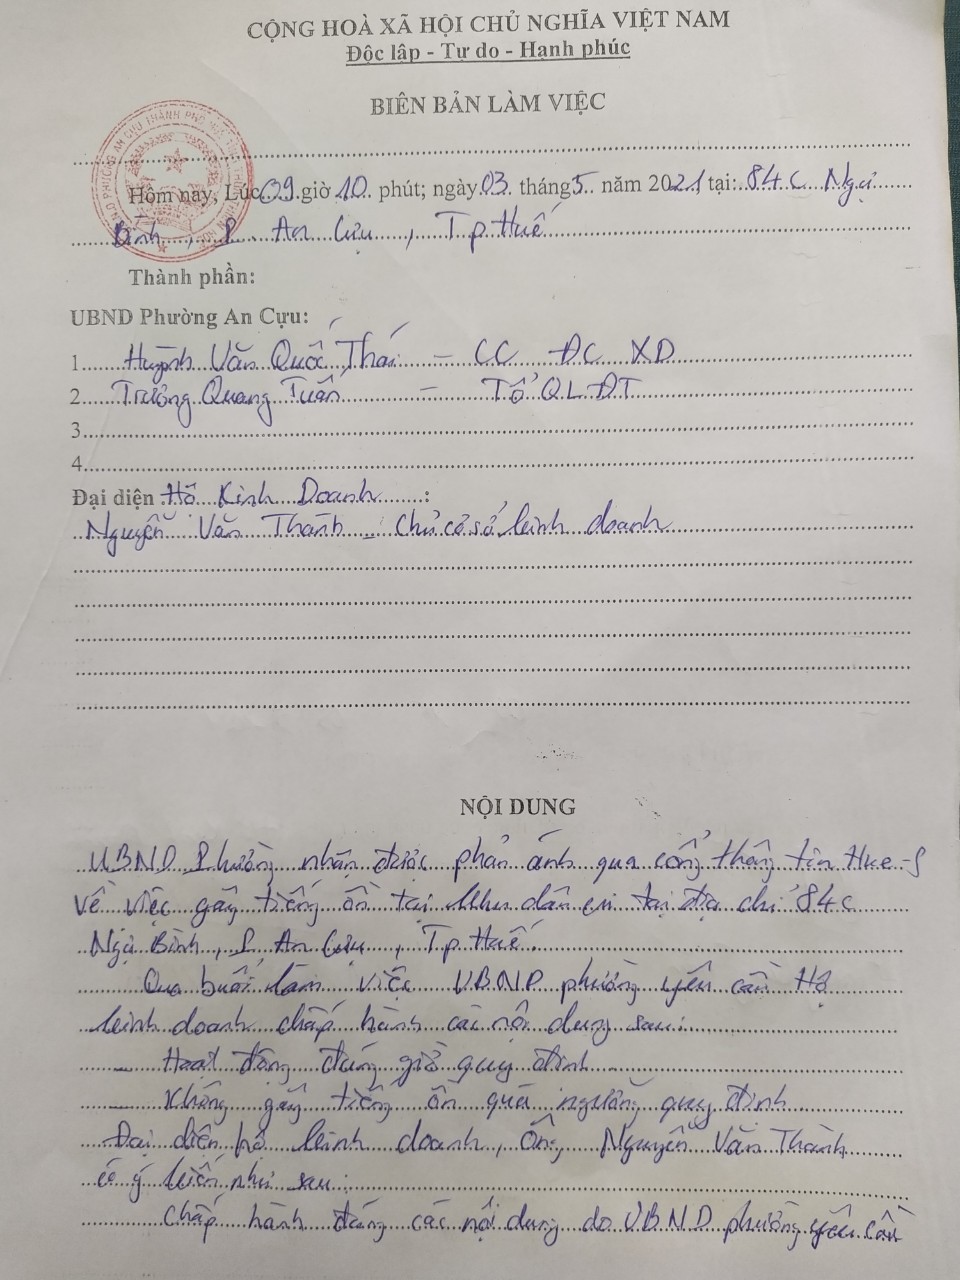 CỘNG HOÀ XÃ HỘI CHỦ NGHĨA VIỆT NAM
Độc lập - Tự do - Hạnh phúc
BIÊN BẢN LÀM VIỆC
Hôm nay, Lúc 09 giờ 10 phút; ngày 03 tháng 5 năm 2021 tại: 84C Ngự
Bình, P. An Cựu, Tp Huế
Thành phần:
UBND Phường An Cựu:
1. Huỳnh Văn Quốc Thái - CC ĐC XD
2. Trương Quang Tuấn - Tổ QLĐT
3.
4.
Đại diện Hộ Kinh Doanh:
Nguyễn Văn Thành - Chủ cơ sở kinh doanh
NỘI DUNG
UBND Phường nhận được phản ánh qua cổng thông tin Hue-S
Về việc gây tiếng ồn tại khu dân cư tại địa chỉ 84C
Ngự Bình, P. An Cựu, Tp. Huế.
Qua buổi làm việc UBND phường yêu cầu Hộ
kinh doanh chấp hành các nội dung sau:
- Hoạt động đúng giờ quy định
- Không gây tiếng ồn quá ngưỡng quy định
Đại diện hộ kinh doanh, Ông Nguyễn Văn Thành
có ý kiến như sau:
Chấp hành đúng các nội dung do UBND phường yêu cầu